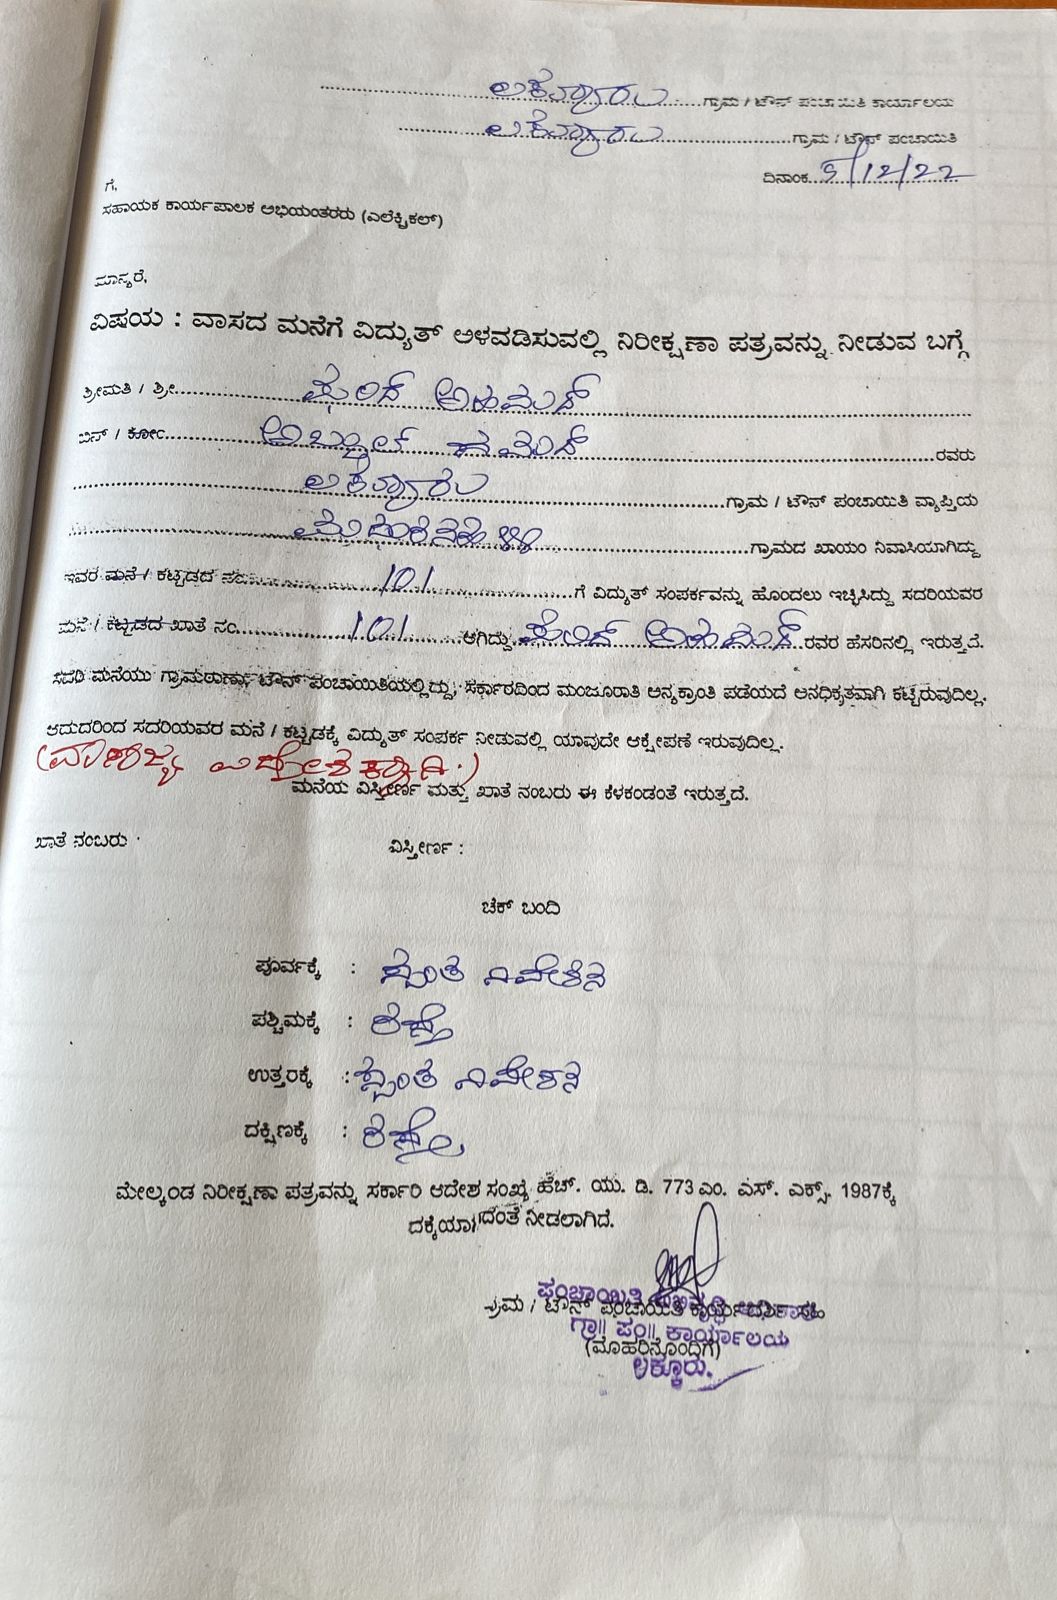 ಗ್ರಾಮ / ಟೌನ್ ಪಂಚಾಯಿತಿ ಕಾರ್ಯಾಲಯ
ಗ್ರಾಮ / ಟೌನ್ ಪಂಚಾಯಿತಿ
ದಿನಾಂಕ 5/12/22
ಗೆ,
ಸಹಾಯಕ ಕಾರ್ಯಪಾಲಕ ಅಭಿಯಂತರರು (ಎಲೆಕ್ಟ್ರಿಕಲ್)
ಮಾನ್ಯರೆ,
ವಿಷಯ : ವಾಸದ ಮನೆಗೆ ವಿದ್ಯುತ್ ಅಳವಡಿಸುವಲ್ಲಿ ನಿರೀಕ್ಷಣಾ ಪತ್ರವನ್ನು ನೀಡುವ ಬಗ್ಗೆ
ಶ್ರೀಮತಿ / ಶ್ರೀ ಅಹಮದ್
ಬಿನ್ / ಕೋಂ ಅಬ್ದುಲ್ ರವರು
ಗ್ರಾಮ / ಟೌನ್ ಪಂಚಾಯಿತಿ ವ್ಯಾಪ್ತಿಯ
ಗ್ರಾಮದ ಖಾಯಂ ನಿವಾಸಿಯಾಗಿದ್ದು
ಇವರ ಮನೆ / ಕಟ್ಟಡದ ನಂ 101 ಗೆ ವಿದ್ಯುತ್ ಸಂಪರ್ಕವನ್ನು ಹೊಂದಲು ಇಚ್ಛಿಸಿದ್ದು ಸದರಿಯವರ
ಮನೆ / ಕಟ್ಟಡದ ಖಾತೆ ನಂ 101 ಆಗಿದ್ದು ಅಹಮದ್ ರವರ ಹೆಸರಿನಲ್ಲಿ ಇರುತ್ತದೆ.
ಸದರಿ ಮನೆಯು ಗ್ರಾಮಠಾಣಾ, ಟೌನ್ ಪಂಚಾಯಿತಿಯಲ್ಲಿದ್ದು, ಸರ್ಕಾರದಿಂದ ಮಂಜೂರಾತಿ ಅನ್ಯಕ್ರಾಂತಿ ಪಡೆಯದೆ ಅನಧಿಕೃತವಾಗಿ ಕಟ್ಟಿರುವುದಿಲ್ಲ.
ಆದುದರಿಂದ ಸದರಿಯವರ ಮನೆ / ಕಟ್ಟಡಕ್ಕೆ ವಿದ್ಯುತ್ ಸಂಪರ್ಕ ನೀಡುವಲ್ಲಿ ಯಾವುದೇ ಆಕ್ಷೇಪಣೆ ಇರುವುದಿಲ್ಲ.
(ವಾಣಿಜ್ಯ
ಮನೆಯ ವಿಸ್ತೀರ್ಣ ಮತ್ತು ಖಾತೆ ನಂಬರು ಈ ಕೆಳಕಂಡಂತೆ ಇರುತ್ತದೆ.
ಖಾತೆ ನಂಬರು ವಿಸ್ತೀರ್ಣ :
ಚೆಕ್ ಬಂದಿ
ಪೂರ್ವಕ್ಕೆ : ಸ್ವಂತ ನಿವೇಶನ
ಪಶ್ಚಿಮಕ್ಕೆ : ರಸ್ತೆ
ಉತ್ತರಕ್ಕೆ : ಸ್ವಂತ ನಿವೇಶನ
ದಕ್ಷಿಣಕ್ಕೆ : ರಸ್ತೆ
ಮೇಲ್ಕಂಡ ನಿರೀಕ್ಷಣಾ ಪತ್ರವನ್ನು ಸರ್ಕಾರಿ ಆದೇಶ ಸಂಖ್ಯೆ ಹೆಚ್. ಯು. ಡಿ. 773 ಎಂ. ಎಸ್. ಎಕ್ಸ್. 1987ಕ್ಕೆ
ದಕ್ಕೆಯಾಗದಂತೆ ನೀಡಲಾಗಿದೆ.
ಪಂಚಾಯಿತಿ ಅಭಿವೃದ್ಧಿ
ಗ್ರಾಮ / ಟೌನ್ ಪಂಚಾಯಿತಿ ಕಾರ್ಯದರ್ಶಿ ಸಹಿ
ಗ್ರಾ|| ಪಂ|| ಕಾರ್ಯಾಲಯ
(ಮೊಹರಿನೊಂದಿಗೆ)
ಲಕ್ಕೂರು.